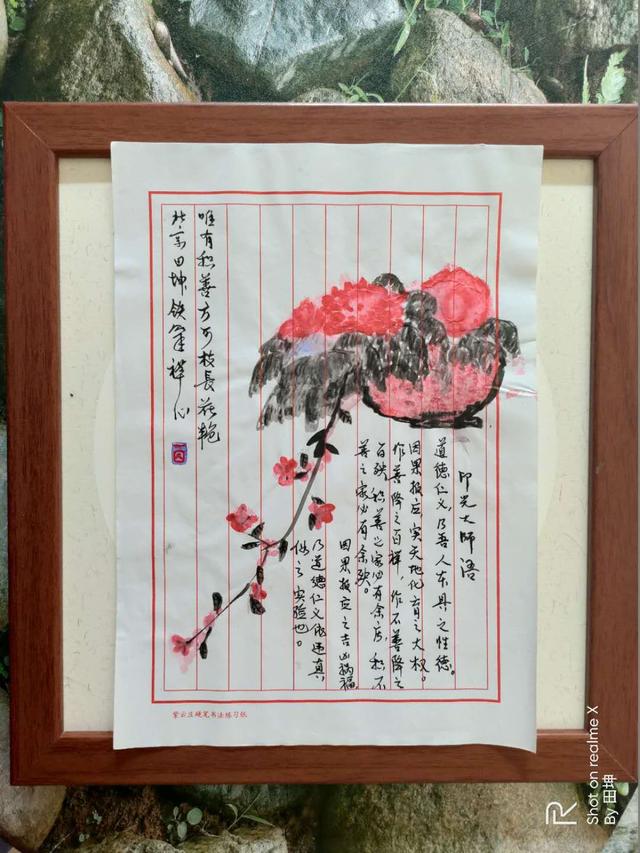 印光大师语
道德仁义，乃吾人本具之性德。
因果报应，实天地化育之大权。
作善降之百祥，作不善降之
百殃，积善之家必有余庆，积不
善之家必有余殃。
因果报应之吉凶祸福，
乃道德仁义依违真
伪之实验也。
唯有积善方可枝長花艳
北京田坤铁筆禅心
紫云庄硬笔书法练习纸
Shot on realme X
By 田坤